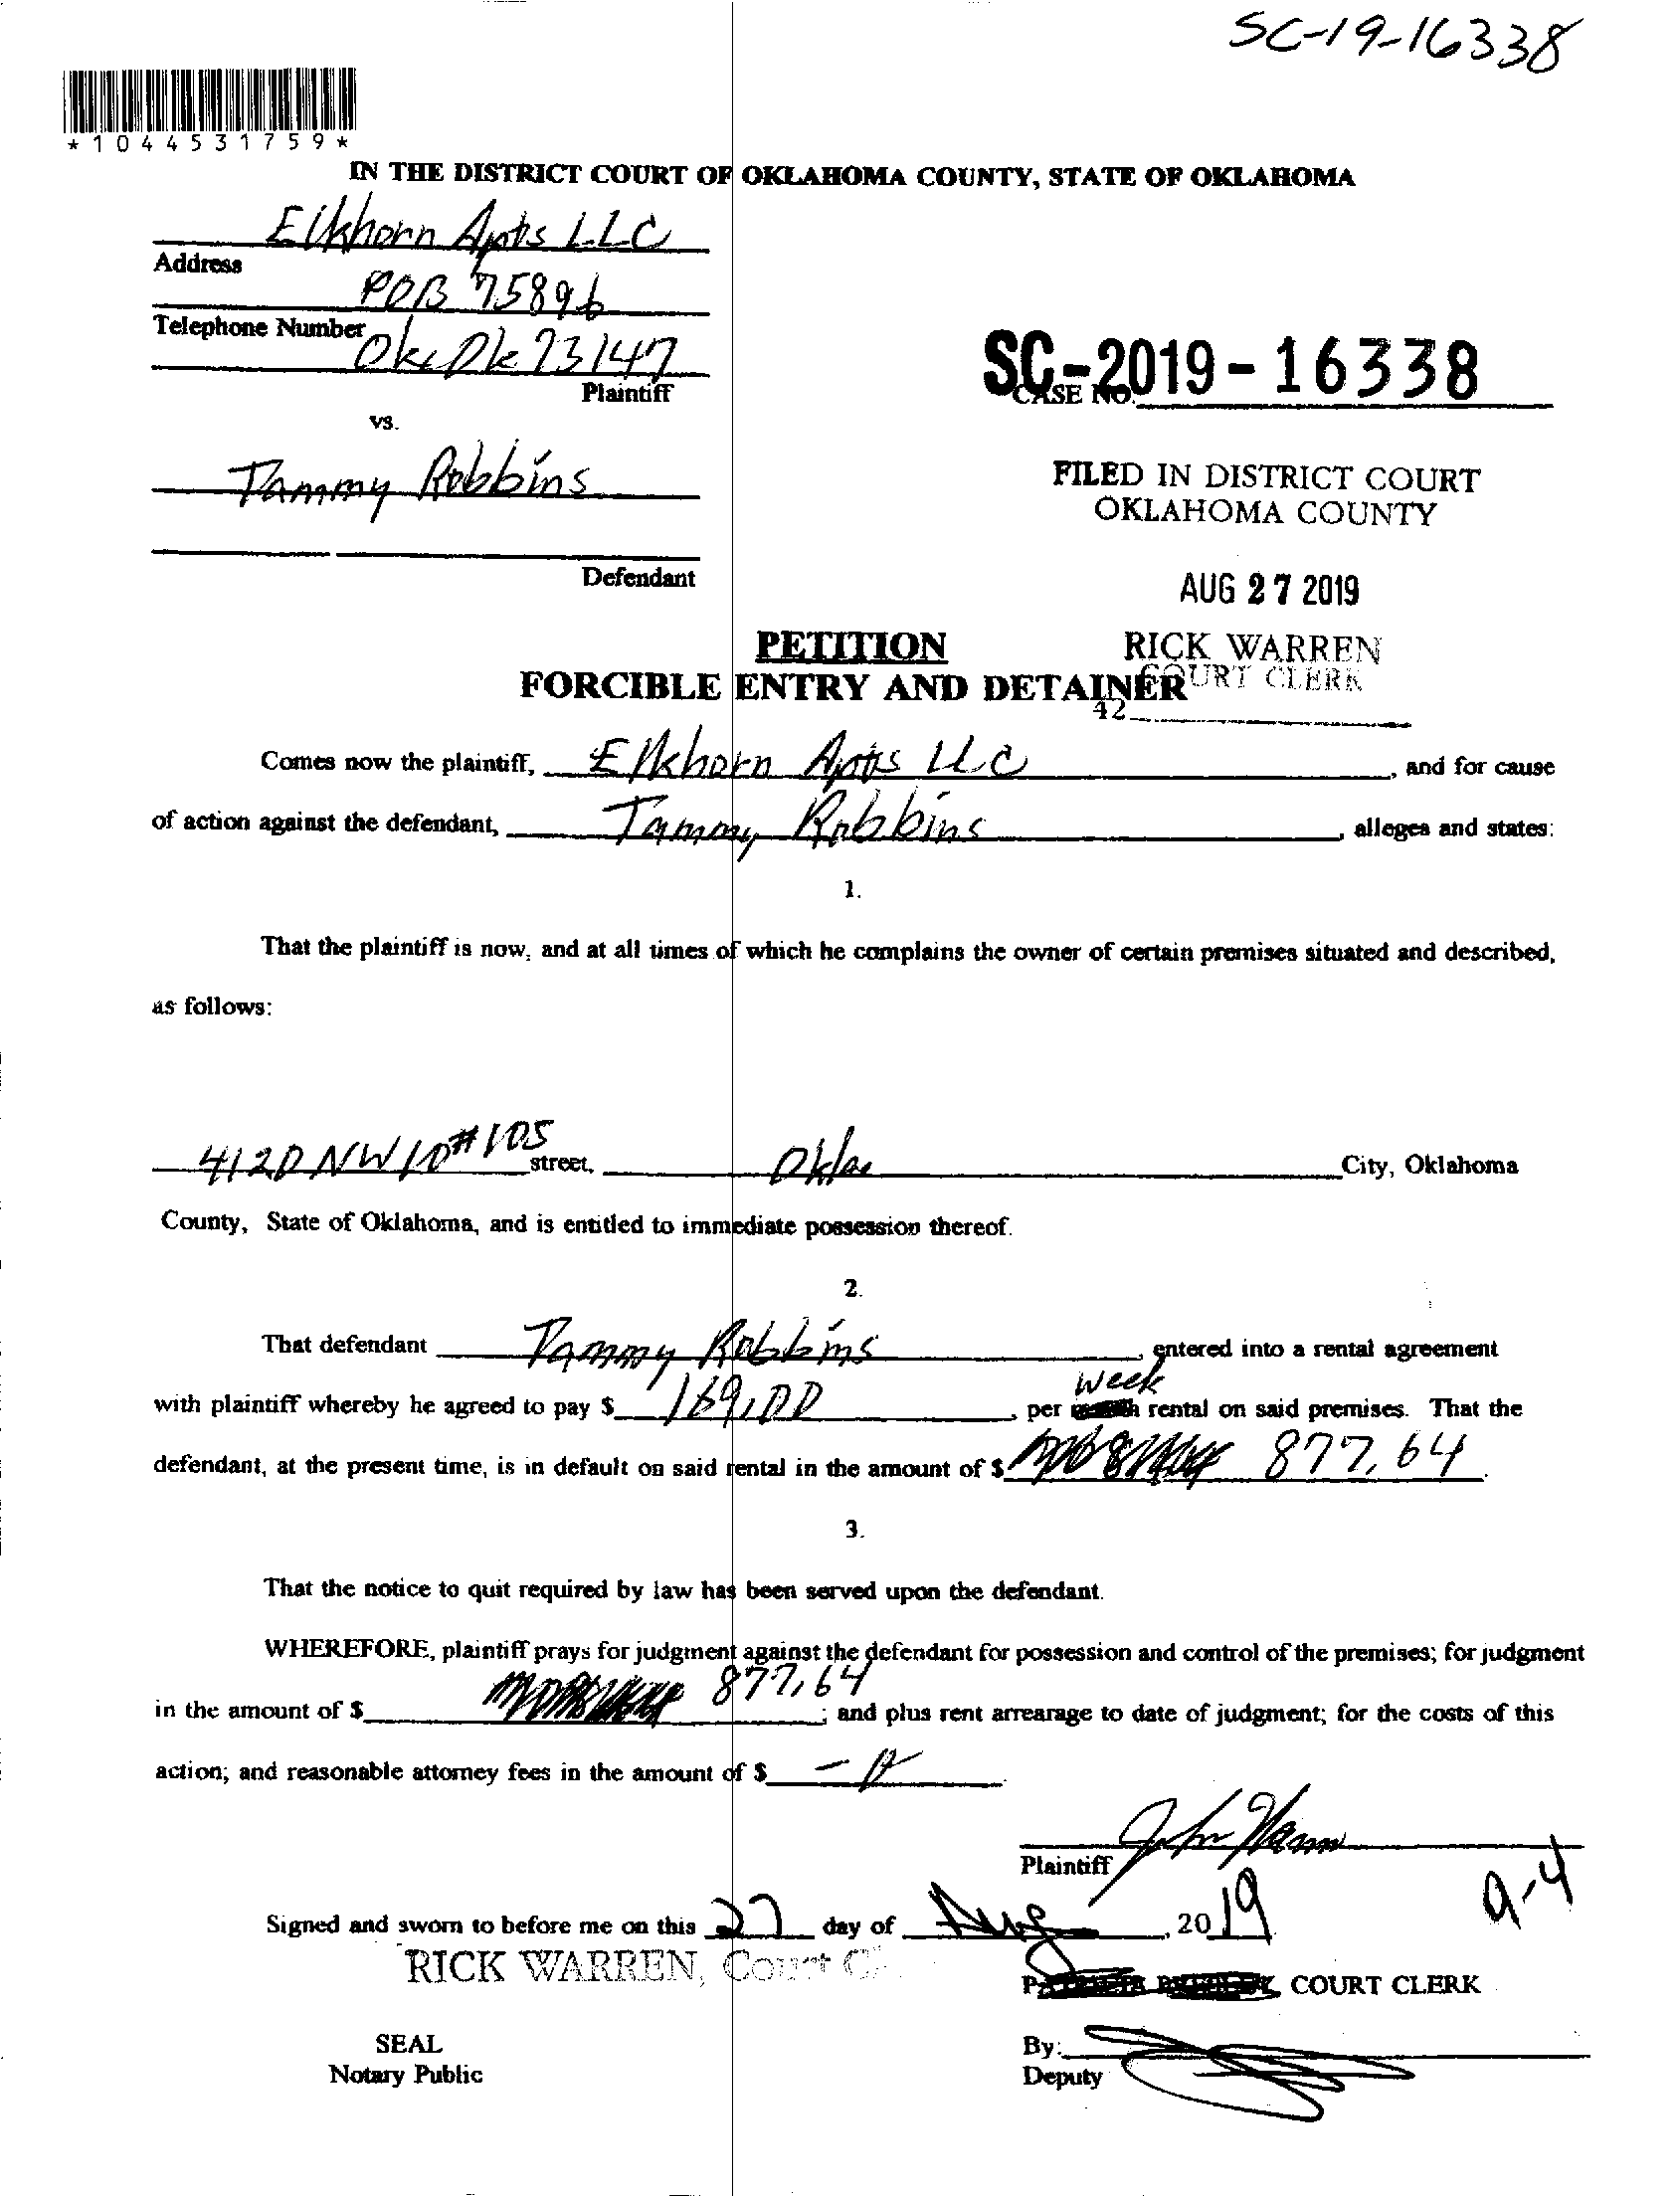 SC-19-16338
*1044531759*
IN THE DISTRICT COURT OF OKLAHOMA COUNTY, STATE OF OKLAHOMA
Elkhorn Apts LLC
Address
POB 75896
Telephone Number
Okc Ok 73147
Plaintiff
SC-2019-16338
CASE NO.
vs.
Tammy Robbins
FILED IN DISTRICT COURT
OKLAHOMA COUNTY
Defendant
AUG 27 2019
PETITION
RICK WARREN
FORCIBLE ENTRY AND DETAINER
COURT CLERK
42
Comes now the plaintiff, Elkhorn Apts LLC, and for cause
of action against the defendant, Tammy Robbins, alleges and states:
1.
That the plaintiff is now, and at all times of which he complains the owner of certain premises situated and described,
as follows:
4120 NW 10 #105 street, Okla City, Oklahoma
County, State of Oklahoma, and is entitled to immediate possession thereof.
2.
That defendant Tammy Robbins, entered into a rental agreement
week
with plaintiff whereby he agreed to pay $ 169.00, per rental on said premises. That the
defendant, at the present time, is in default on said rental in the amount of $ 877.64.
3.
That the notice to quit required by law has been served upon the defendant.
WHEREFORE, plaintiff prays for judgment against the defendant for possession and control of the premises; for judgment
in the amount of $ 877.64; and plus rent arrearage to date of judgment; for the costs of this
action; and reasonable attorney fees in the amount of $
Plaintiff
9-4
Signed and sworn to before me on this 27 day of Aug, 2019
RICK WARREN, Court
COURT CLERK
SEAL
By:
Notary Public
Deputy